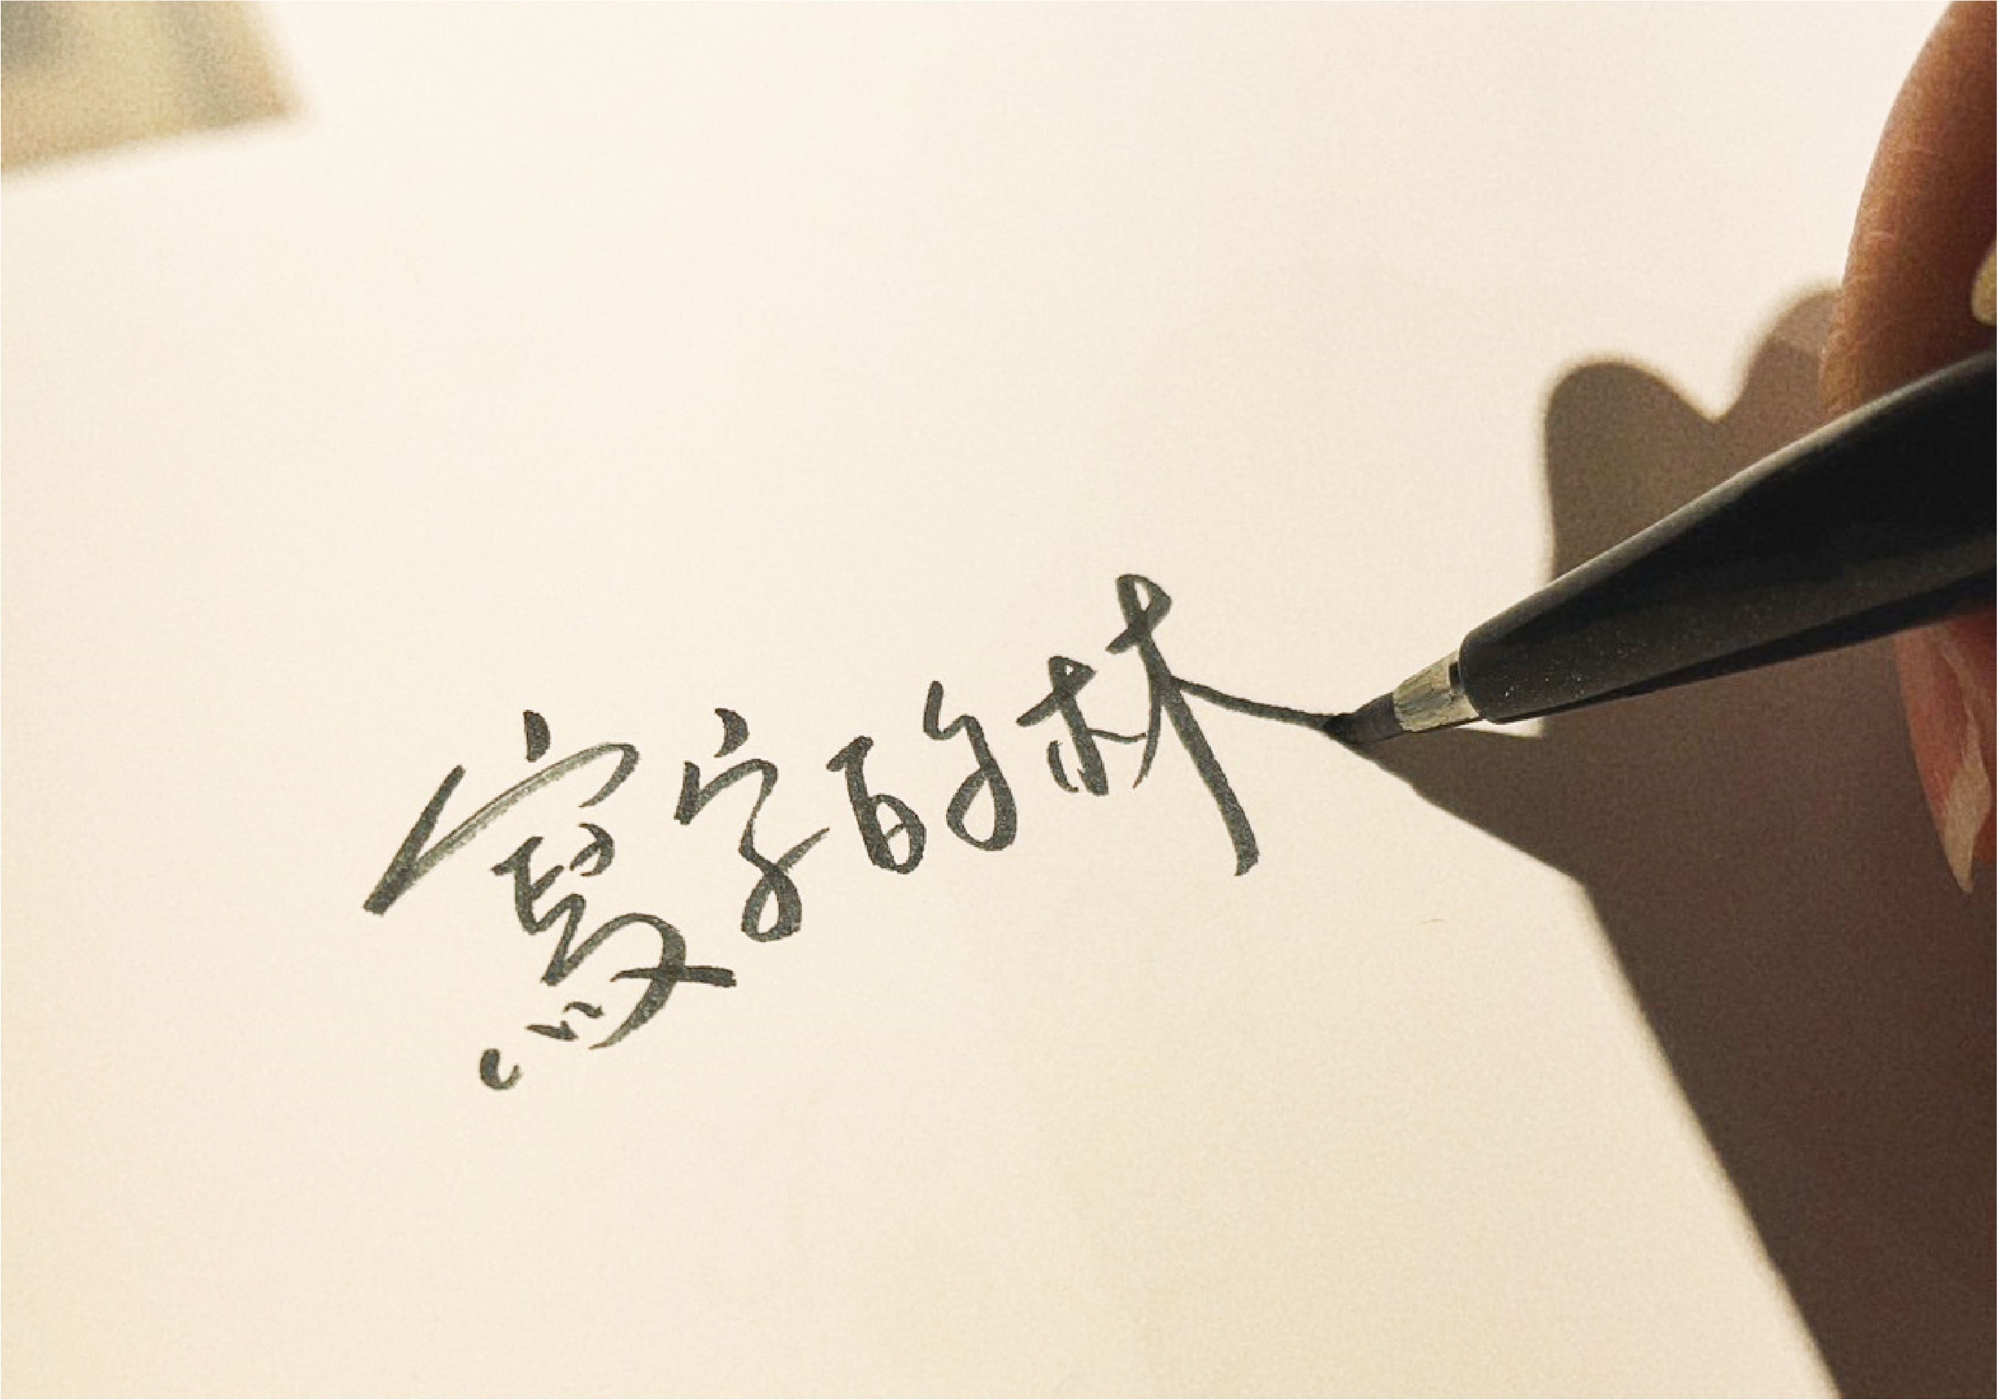 寫字的林